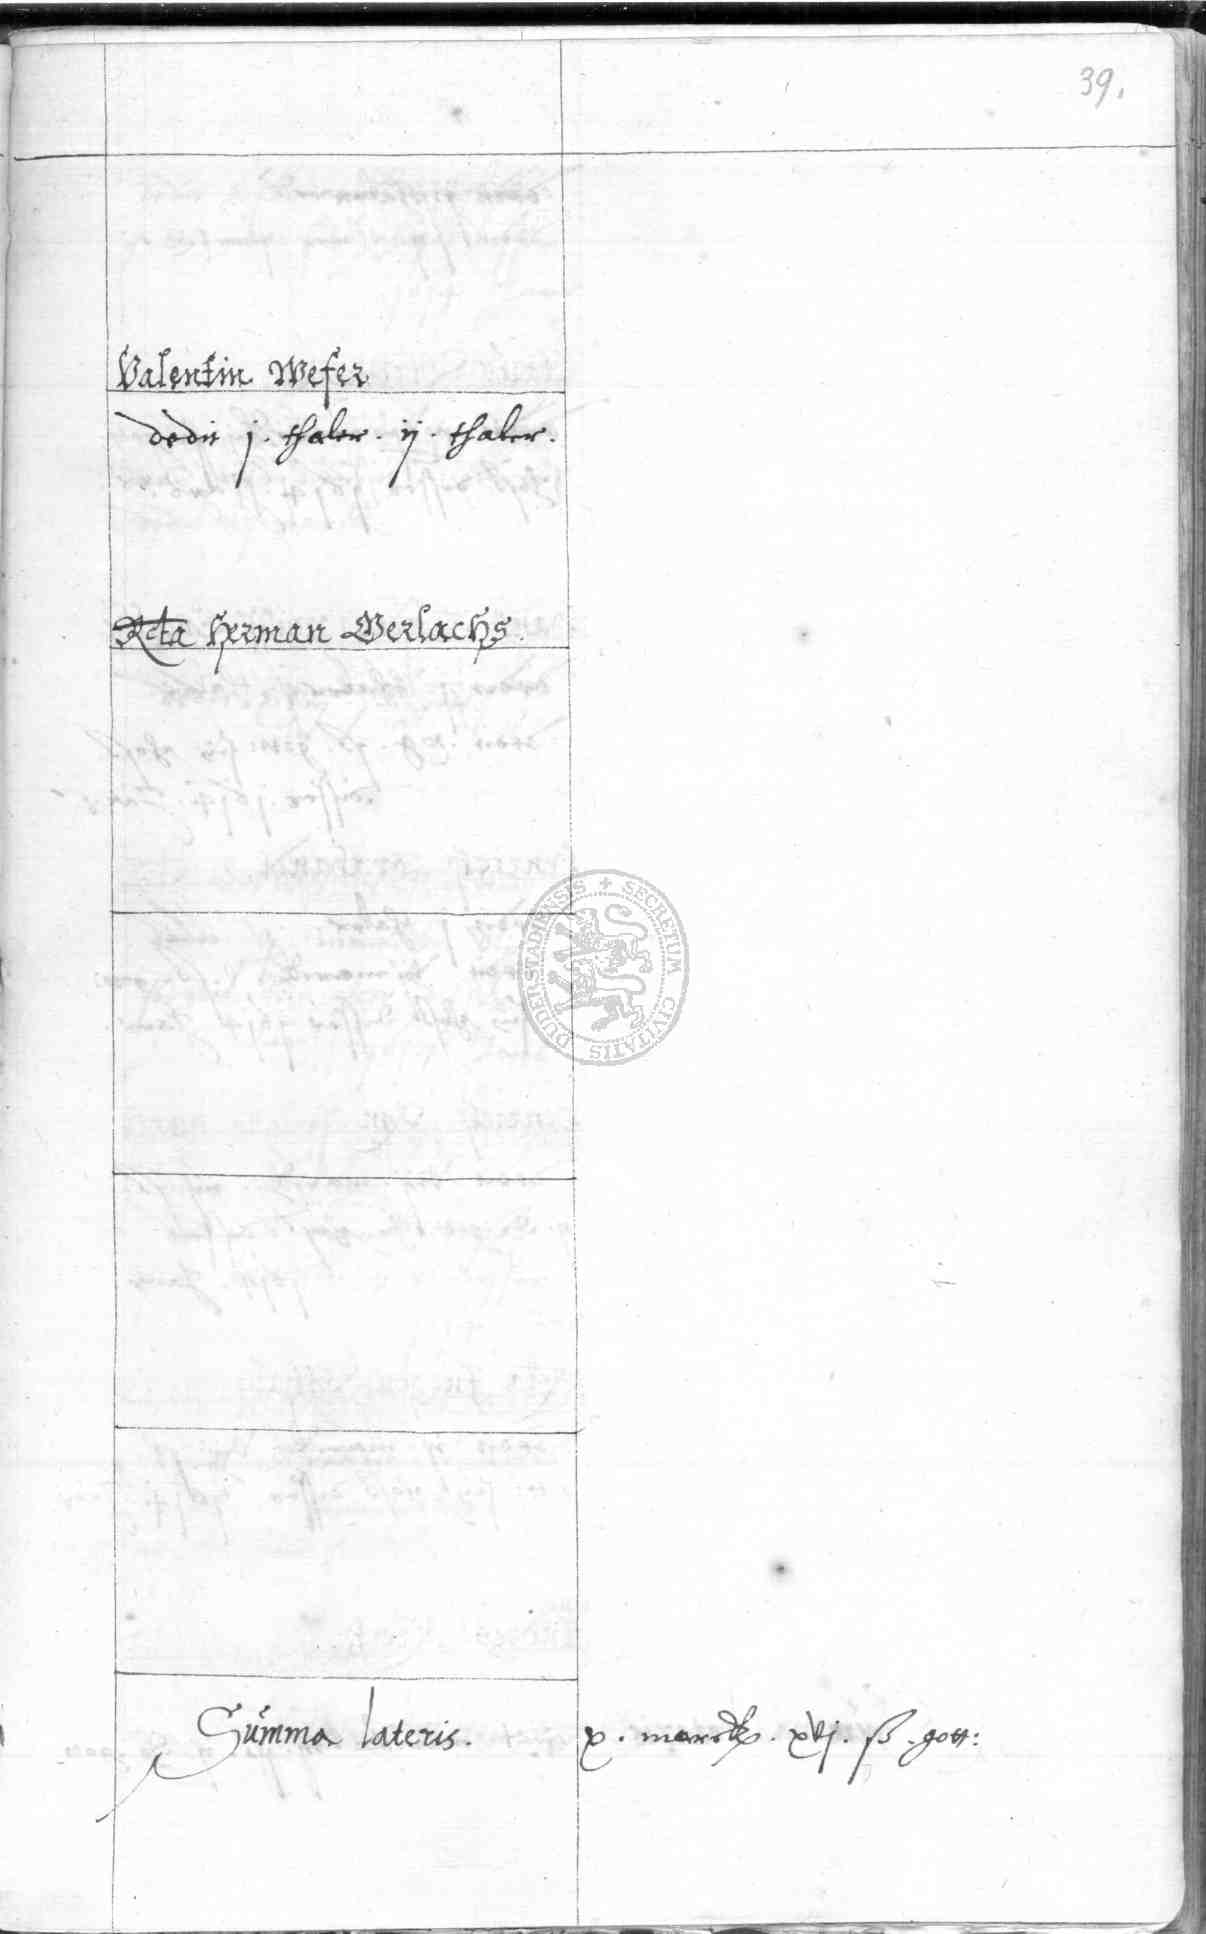 39.
Valentin Wefer
dedit j. thaler. ij. thaler.
Rcta Herman Gerlachs.
SECRETUM CIVITATIS DUDERSTADIENSIS
Summa lateris. x. marck. xvj. ß. gott: